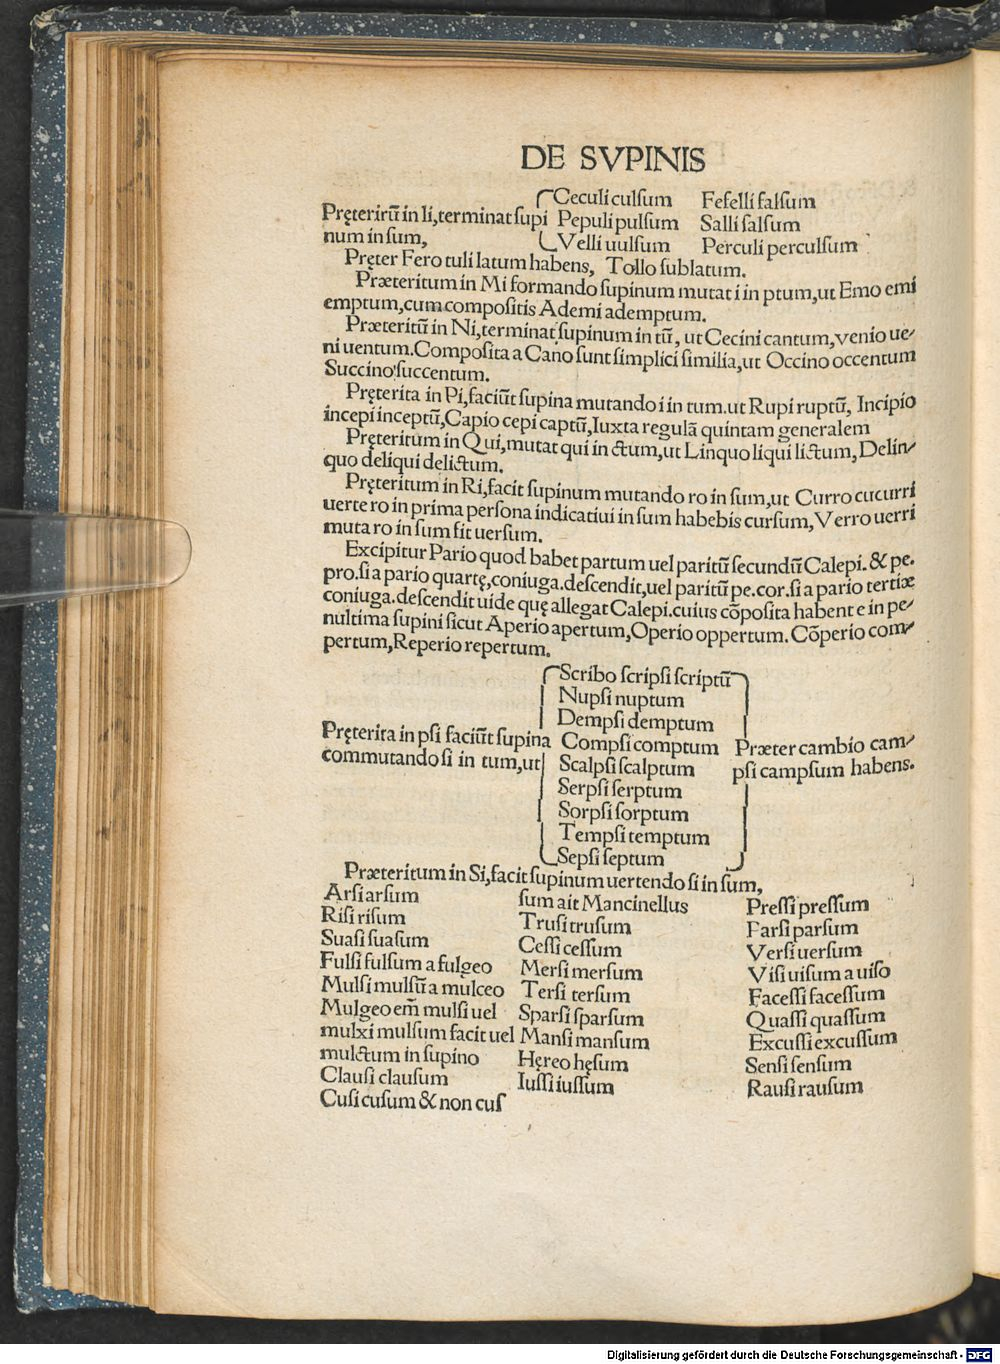 DE SVPINIS
Ceculi culſum Fefelli falſum
Pręteritū in li, terminat ſupi Pepuli pulſum Salli ſalſum
num in ſum, Velli uulſum Perculi perculſum
Pręter Fero tuli latum habens, Tollo ſublatum.
Præteritum in Mi formando ſupinum mutat i in ptum, ut Emo emi
emptum, cum compoſitis Ademi ademptum.
Præteritū in Ni, terminat ſupinum in tū, ut Cecini cantum, venio ue⸗
ni uentum. Compoſita a Cano ſunt ſimplici ſimilia, ut Occino occentum
Succino ſuccentum.
Pręterita in Pi, faciūt ſupina mutando i in tum. ut Rupi ruptū, Incipio
incepi inceptū, Capio cepi captū, Iuxta regulā quintam generalem
Pręteritum in Qui, mutat qui in ctum, ut Linquo liqui lictum, Delin⸗
quo deliqui delictum.
Pręteritum in Ri, facit ſupinum mutando ro in ſum, ut Curro cucurri
uerte ro in prima perſona indicatiui in ſum habebis curſum, Verro uerri
muta ro in ſum fit uerſum.
Excipitur Pario quod babet partum uel paritū ſecundū Calepi. & pe.
pro. ſi a pario quartę, coniuga. deſcendit, uel paritū pe. cor. ſi a pario tertiæ
coniuga. deſcendit uide quę allegat Calepi. cuius cōpoſita habent e in pe⸗
nultima ſupini ſicut Aperio apertum, Operio oppertum. Cōperio com⸗
pertum, Reperio repertum.
Scribo ſcripſi ſcriptū
Nupſi nuptum
Dempſi demptum
Pręterita in pſi faciūt ſupina Compſi comptum Præter cambio cam⸗
commutando ſi in tum, ut Scalpſi ſcalptum pſi campſum habens.
Serpſi ſerptum
Sorpſi ſorptum
Tempſi temptum
Sepſi ſeptum
Præteritum in Si, facit ſupinum uertendo ſi in ſum,
Arſi arſum
Riſi riſum
Suaſi ſuaſum
Fulſi fulſum a fulgeo
Mulſi mulſū a mulceo
Mulgeo em̄ mulſi uel
mulxi mulſum facit uel
mulctum in ſupino
Clauſi clauſum
Cuſi cuſum & non cuſ
ſum ait Mancinellus
Truſi truſum
Ceſſi ceſſum
Merſi merſum
Terſi terſum
Sparſi ſparſum
Manſi manſum
Hęreo hęſum
Iuſſi iuſſum
Preſſi preſſum
Farſi parſum
Verſi uerſum
Viſi uiſum a uiſo
Faceſſi faceſſum
Quaſſi quaſſum
Excuſſi excuſſum
Senſi ſenſum
Rauſi rauſum
Digitalisierung gefördert durch die Deutsche Forschungsgemeinschaft - DFG